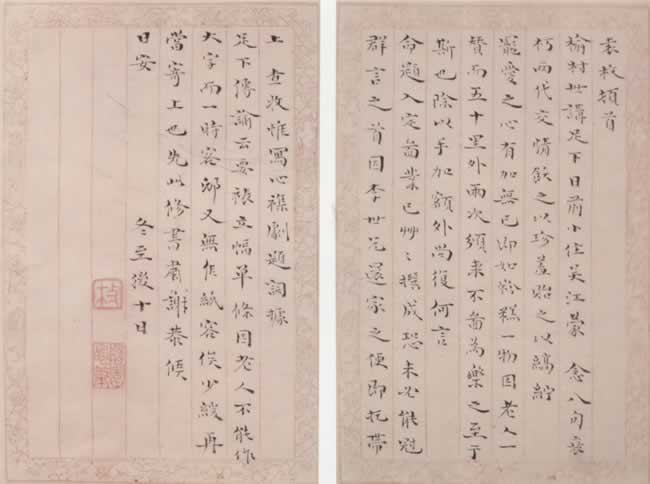 袁枚頓首
榆村世講足下日前小住吳江蒙 念八旬衰
朽兩代交情飲之以珍羞貽之以縞紵
寵愛之心有加無已即如 糕一物因老人一
贊而五十里外兩次頒來不啻為樂之至于
斯也除以手加額外尚復何言
命題入定圖業已艸艸撰成恐未必能冠
群言之首因李世兄還家之便即托帶
上 查收惟寫心襍劇題詞據
足下傳諭云要裱立幅單條因老人不能作
大字而一時客邸又無佳紙容俟少緩再
當寄上也先此修書肅謝恭候
日安 冬至後十日
枚